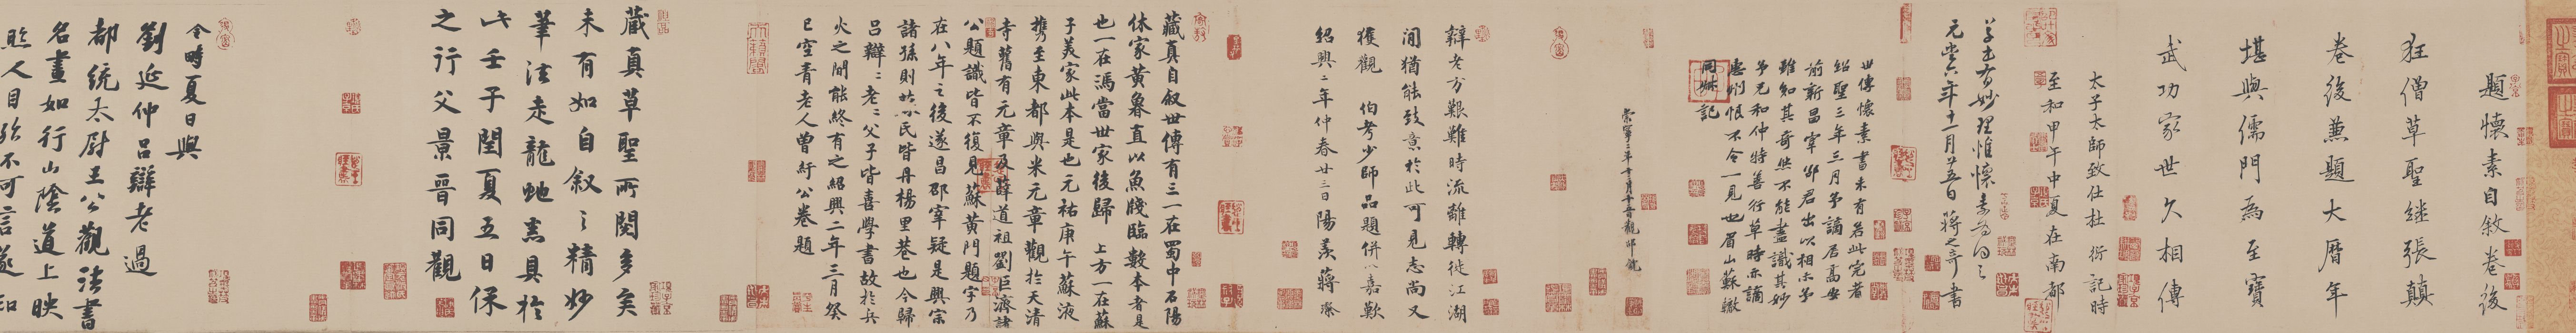 題懷素自敘卷後
狂僧草聖继張顛
卷後兼題大曆年
堪與儒門為至寶
武功家世久相傳
太子太師致仕杜衍記時
至和甲午中夏在南都
草書有妙理惟懷素為得之
元豊六年十一月廿五日蔣之奇書
世傳懷素書未有若此完者
紹聖三年三月予謫居高安
前新昌宰邵君出以相示予
雖知其奇然不能盡識其妙
予兄和仲特善行草時亦謫
惠州恨不令一見也眉山蘇轍
同叔記
崇寧二年十月十二日觀邵䶵
辯老方艱難時流離轉徙江湖
間猶能致意於此可見志尚又
獲觀 伯考少師品題併以嘉歎
紹興二年仲春廿三日陽羨蔣璨
藏真自叙世傳有三一在蜀中石陽
休家黄魯直以魚牋臨數本者是
也一在馮當世家後歸 上方一在蘇
子美家此本是也元祐庚午蘇液
攜至東都與米元章觀於天清
寺舊有元章及薛道祖劉巨濟諸
公題識皆不復見蘇黄門題字乃
在八年之後遂昌邵宰疑是興宗
諸孫則
民皆丹楊里巷也今歸
吕辯二老二父子皆喜學書故於兵
火之間能終有之紹興二年三月癸
巳空青老人曾紆公卷題
藏真草聖所閱多矣
未有如自叙之精妙
筆法走龍蛇盡具於
此壬子閏夏五日保
之行父景晋同觀
令時夏日與
劉延仲吕辯老過
都統太尉王公觀法書
名畫如行山陰道上映
照人目殆不可言遂知